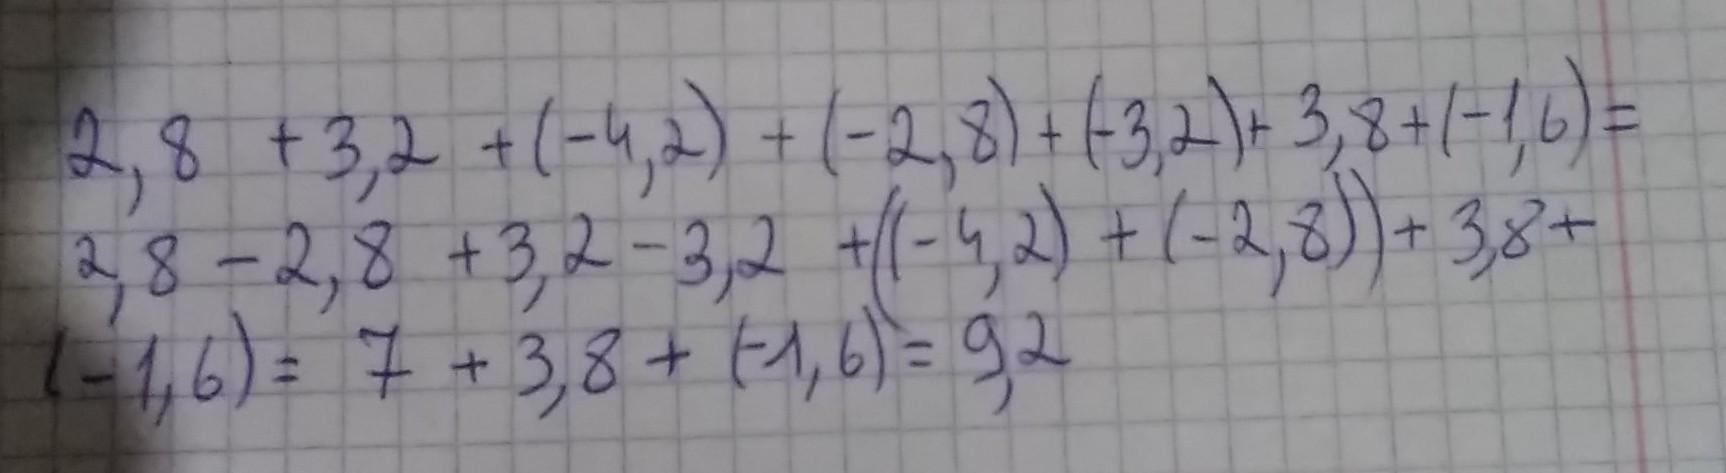 2,8 + 3,2 + (-4,2) + (-2,8) + (-3,2) + 3,8 + (-1,6) =
2,8 - 2,8 + 3,2 - 3,2 + ((-4,2) + (-2,8)) + 3,8 +
(-1,6) = 7 + 3,8 + (-1,6) = 9,2